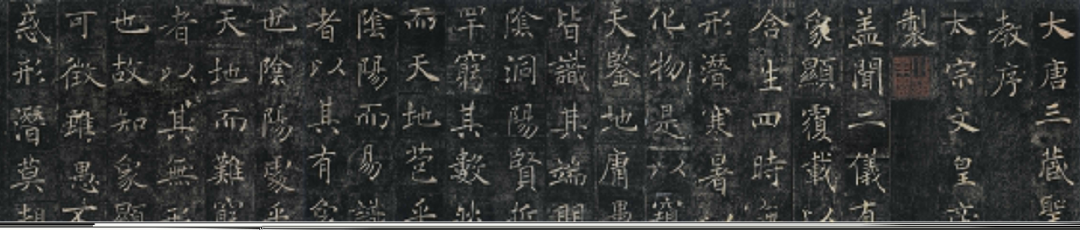 大唐三藏聖
教序
太宗文皇帝
製
盖聞二儀有
象顯覆載以
含生四時無
形潛寒暑以
化物是以窺
天鑒地庸愚
皆識其端明
陰洞陽賢哲
罕窮其數然
而天地苞乎
陰陽而易識
者以其有象
也陰陽處乎
天地而難窮
者以其無形
也故知象顯
可徵雖愚不
惑形潛莫